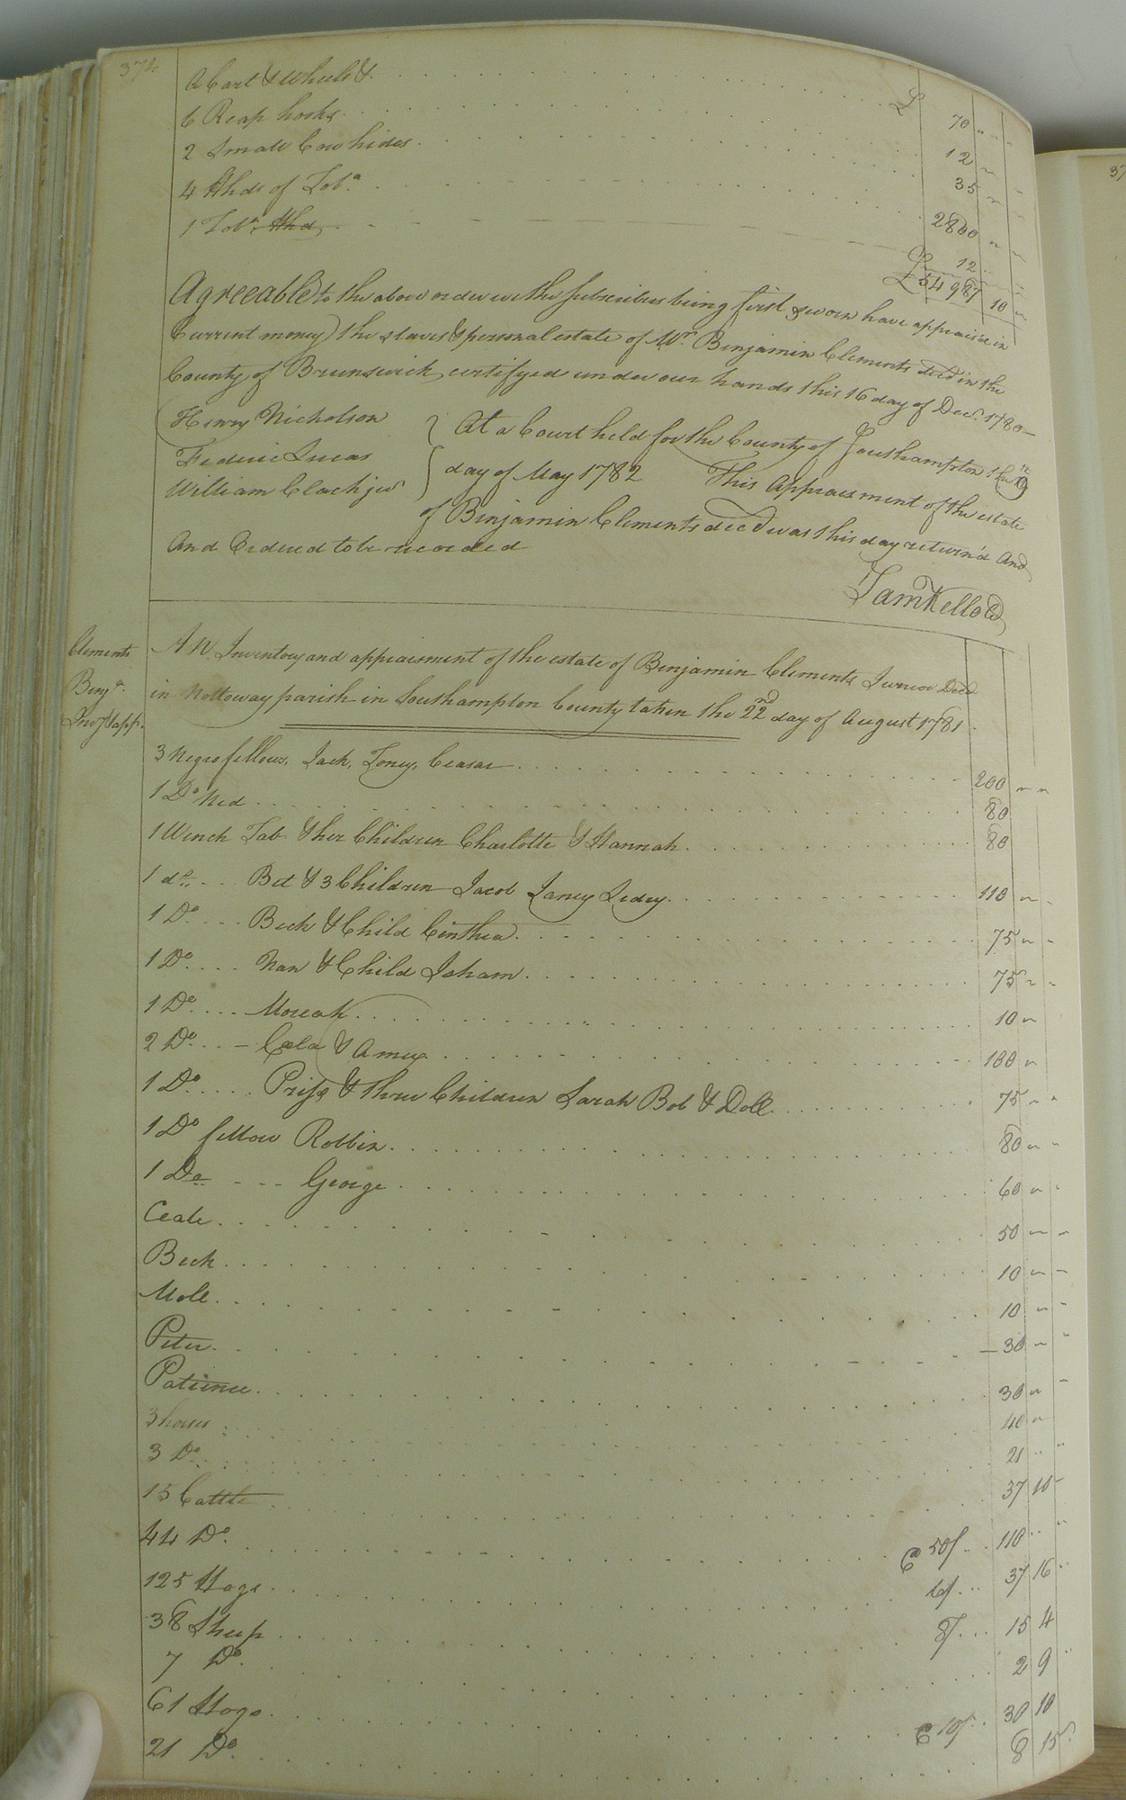 374
A Cart & Wheels &. £ 70 " "
6 Reap hooks 12 " "
2 Small Cow hides 35 " "
4 Hhds of Tobo. 2800 " "
1 Tobo. Hhd, 12 " "
£ 54987 10 "
Agreeable to the above order we the subscribers being first sworn have appraised in
Current money the slaves & personal estate of Mr. Benjamin Clements decd in the
County of Brunswick, certifyed under our hands this 16 day of Decr. 1780
Henry Nicholson
Federic Lucas
William Clack jur
At a Court held for the County of Southampton the
day of May 1782 This Appraisment of the estate
of Benjamin Clements decd was this day return'd And
And Ordered to be recorded
Saml Kello
Clements
Benja.
Invy & app.
AN Inventory and appraisment of the estate of Benjamin Clements Junior Decd
in Nottoway parish in Southampton County taken the 22nd day of August 1781
3 Negro fellows, Jack, Toney, Ceasar 200 " "
1 Do Ned 80
1 Wench Tab & her Children Charlotte & Hannah 80
1 do. Bet & 3 Children Jacob Laney Lidey 110 " "
1 Do Beck & Child Cinthea 75 " "
1 Do. Nan & Child Isham 75 " "
1 Do. Moreah 10 "
2 Do. Cela & Amey 100 "
1 Do. Prissy & three Children Sarah Bob & Doll 75 " "
1 Do fellow Robbin 80 " "
1 Do George 60 " "
Ceale 50 " "
Beck 10 " "
Moll 10 " "
Peter 30 " "
Patience 30 " "
3 horses 40 "
3 Do. 21 " "
15 Cattle 37 10
44 Do. @ 50/ 110 " "
125 Hogs 6/ 37 16 "
38 Sheep 8/ 15 4
7 Do. 2 9 "
61 Hogs @ 10/ 30 10
21 Do. 8 15 "
37